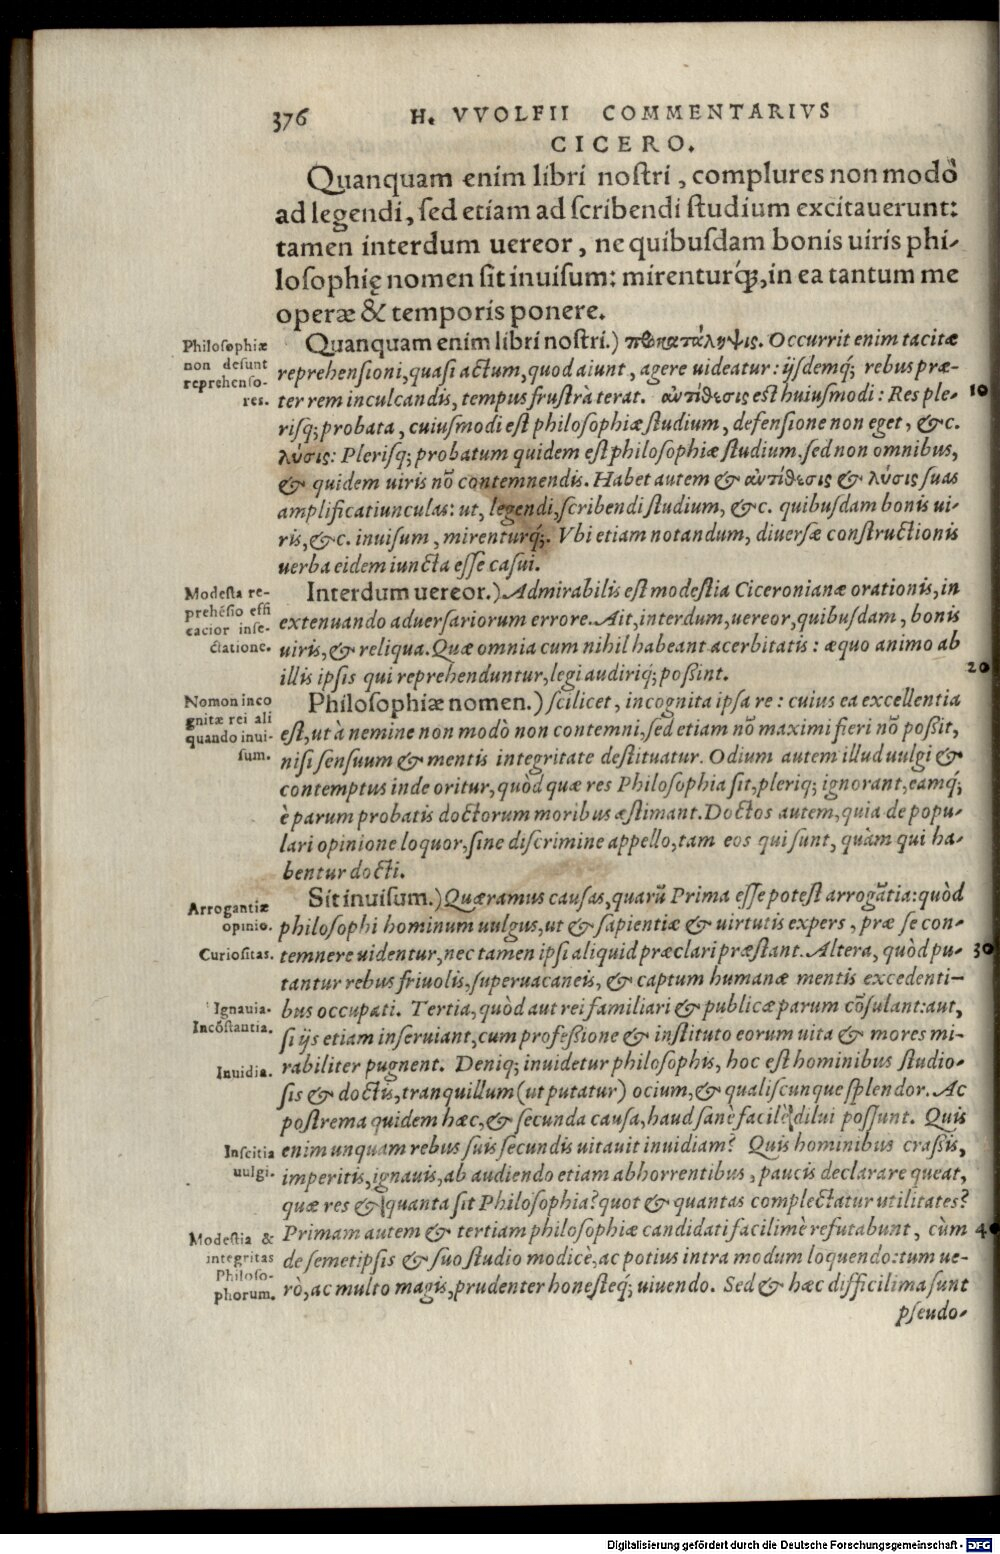 376 H. VVOLFII COMMENTARIVS
CICERO.
Quanquam enim libri nostri, complures non modò
ad legendi, sed etiam ad scribendi studium excitauerunt:
tamen interdum uereor, ne quibusdam bonis uiris phi-
losophię nomen sit inuisum: mirenturq́;, in ea tantum me
operæ & temporis ponere.
Philosophiæ
non desunt
reprehenso-
res.
Quanquam enim libri nostri.) προκατάληψις. Occurrit enim tacitæ
reprehensioni, quasi actum, quod aiunt, agere uideatur: ijsdemq́; rebus præ-
ter rem inculcandis, tempus frustrà terat. ἀντίθεσις est huiusmodi: Res ple- 10
risq; probata, cuiusmodi est philosophiæ studium, defensione non eget, &c.
λύσις: Plerisq; probatum quidem est philosophiæ studium. sed non omnibus,
& quidem uiris nō contemnendis. Habet autem & ἀντίθεσις & λύσις suas
amplificatiunculas: ut, legendi, scribendi studium, &c. quibusdam bonis ui-
ris, &c. inuisum, mirenturq́;. Vbi etiam notandum, diuersæ constructionis
uerba eidem iuncta esse casui.
Modesta re-
prehēsio effi
cacior inse-
ctatione.
Interdum uereor.) Admirabilis est modestia Ciceronianæ orationis, in
extenuando aduersariorum errore. Ait, interdum, uereor, quibusdam, bonis
uiris, & reliqua. Quæ omnia cum nihil habeant acerbitatis: æquo animo ab
illis ipsis qui reprehenduntur, legi audiriq; possint. 20
Nomon inco
gnitæ rei ali
quando inui-
sum.
Philosophiæ nomen.) scilicet, incognita ipsa re: cuius ea excellentia
est, ut à nemine non modò non contemni, sed etiam nō maximi fieri nō possit,
nisi sensuum & mentis integritate destituatur. Odium autem illud uulgi &
contemptus inde oritur, quòd quæ res Philosophia sit, pleriq; ignorant, eamq́;
è parum probatis doctorum moribus æstimant. Doctos autem, quia de popu-
lari opinione loquor, sine discrimine appello, tam eos qui sunt, quàm qui ha-
bentur docti.
Arrogantiæ
opinio.
Curiositas.
Ignauia.
Incōstantia.
Inuidia.
Inscitia
uulgi.
Modestia &
integritas
Philoso-
phorum.
Sit inuisum.) Quæramus causas, quarū Prima esse potest arrogātia: quòd
philosophi hominum uulgus, ut & sapientiæ & uirtutis expers, præ se con-
temnere uidentur, nec tamen ipsi aliquid præclari præstant. Altera, quòd pu- 30
tantur rebus friuolis, superuacaneis, & captum humanæ mentis excedenti-
bus occupati. Tertia, quòd aut rei familiari & publicæ parum cōsulant: aut,
si ijs etiam inseruiant, cum professione & instituto eorum uita & mores mi-
rabiliter pugnent. Deniq; inuidetur philosophis, hoc est hominibus studio-
sis & doctis, tranquillum (ut putatur) ocium, & qualiscunque splendor. Ac
postrema quidem hæc, & secunda causa, haud sanè facilè dilui possunt. Quis
enim unquam rebus suis secundis uitauit inuidiam? Quis hominibus crassis,
imperitis, ignauis, ab audiendo etiam abhorrentibus, paucis declarare queat,
quæ res & quanta sit Philosophia? quot & quantas complectatur utilitates?
Primam autem & tertiam philosophiæ candidati facilimè refutabunt, cùm 40
de semetipsis & suo studio modicè, ac potius intra modum loquendo: tum ue-
rò, ac multo magis, prudenter honesteq́; uiuendo. Sed & hæc difficilima sunt
pseudo-
Digitalisierung gefördert durch die Deutsche Forschungsgemeinschaft - DFG